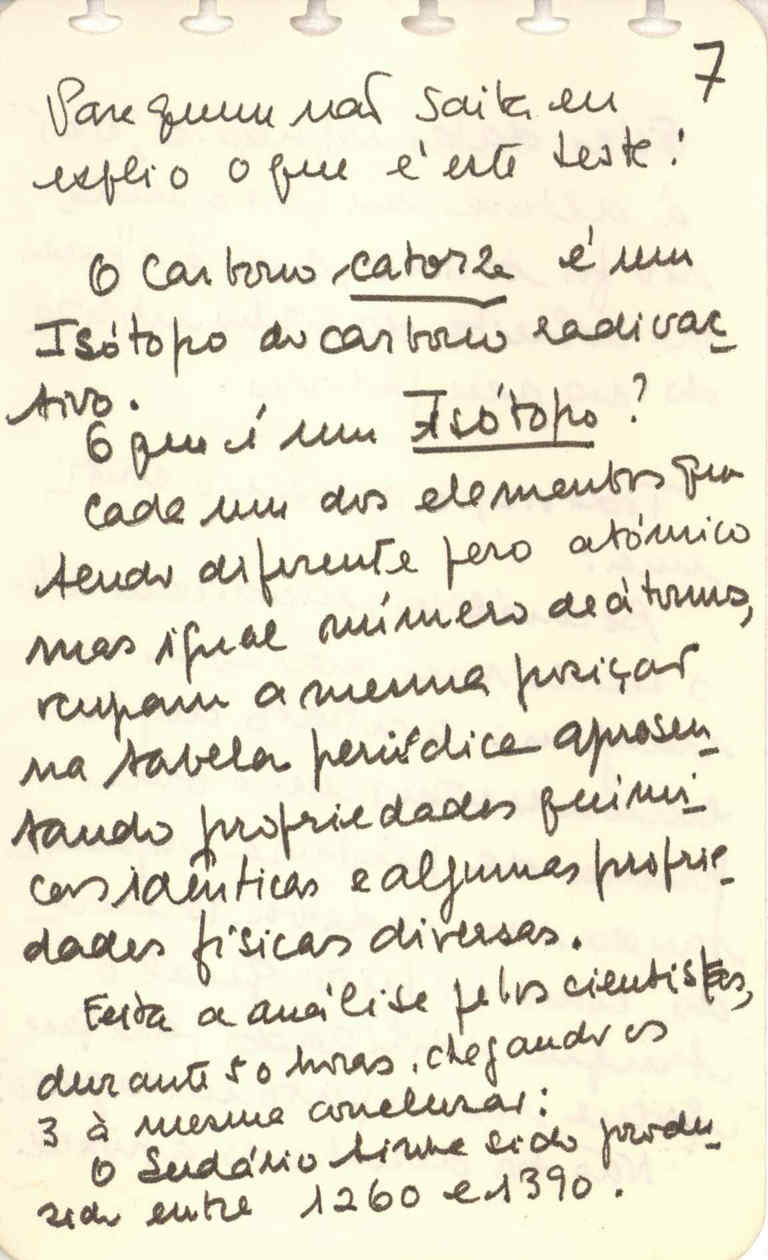 7
Para quem não saiba eu
explio o que é este teste!
O Carbono catorze é um
Isótopo do carbono radioac-
tivo.
O que é um Isótopo?
Cada um dos elementos que
tendo diferente peso atómico
mas igual número de átomos,
ocupam a mesma posição
na tabela periódica apresen-
tando propriedades quimi-
cas idênticas e algumas proprie-
dades físicas diversas.
Feita a análise pelos cientistas,
durante 50 horas, chegando os
3 à mesma conclusão:
O Sudário tinha sido produ-
zido entre 1260 e 1390.